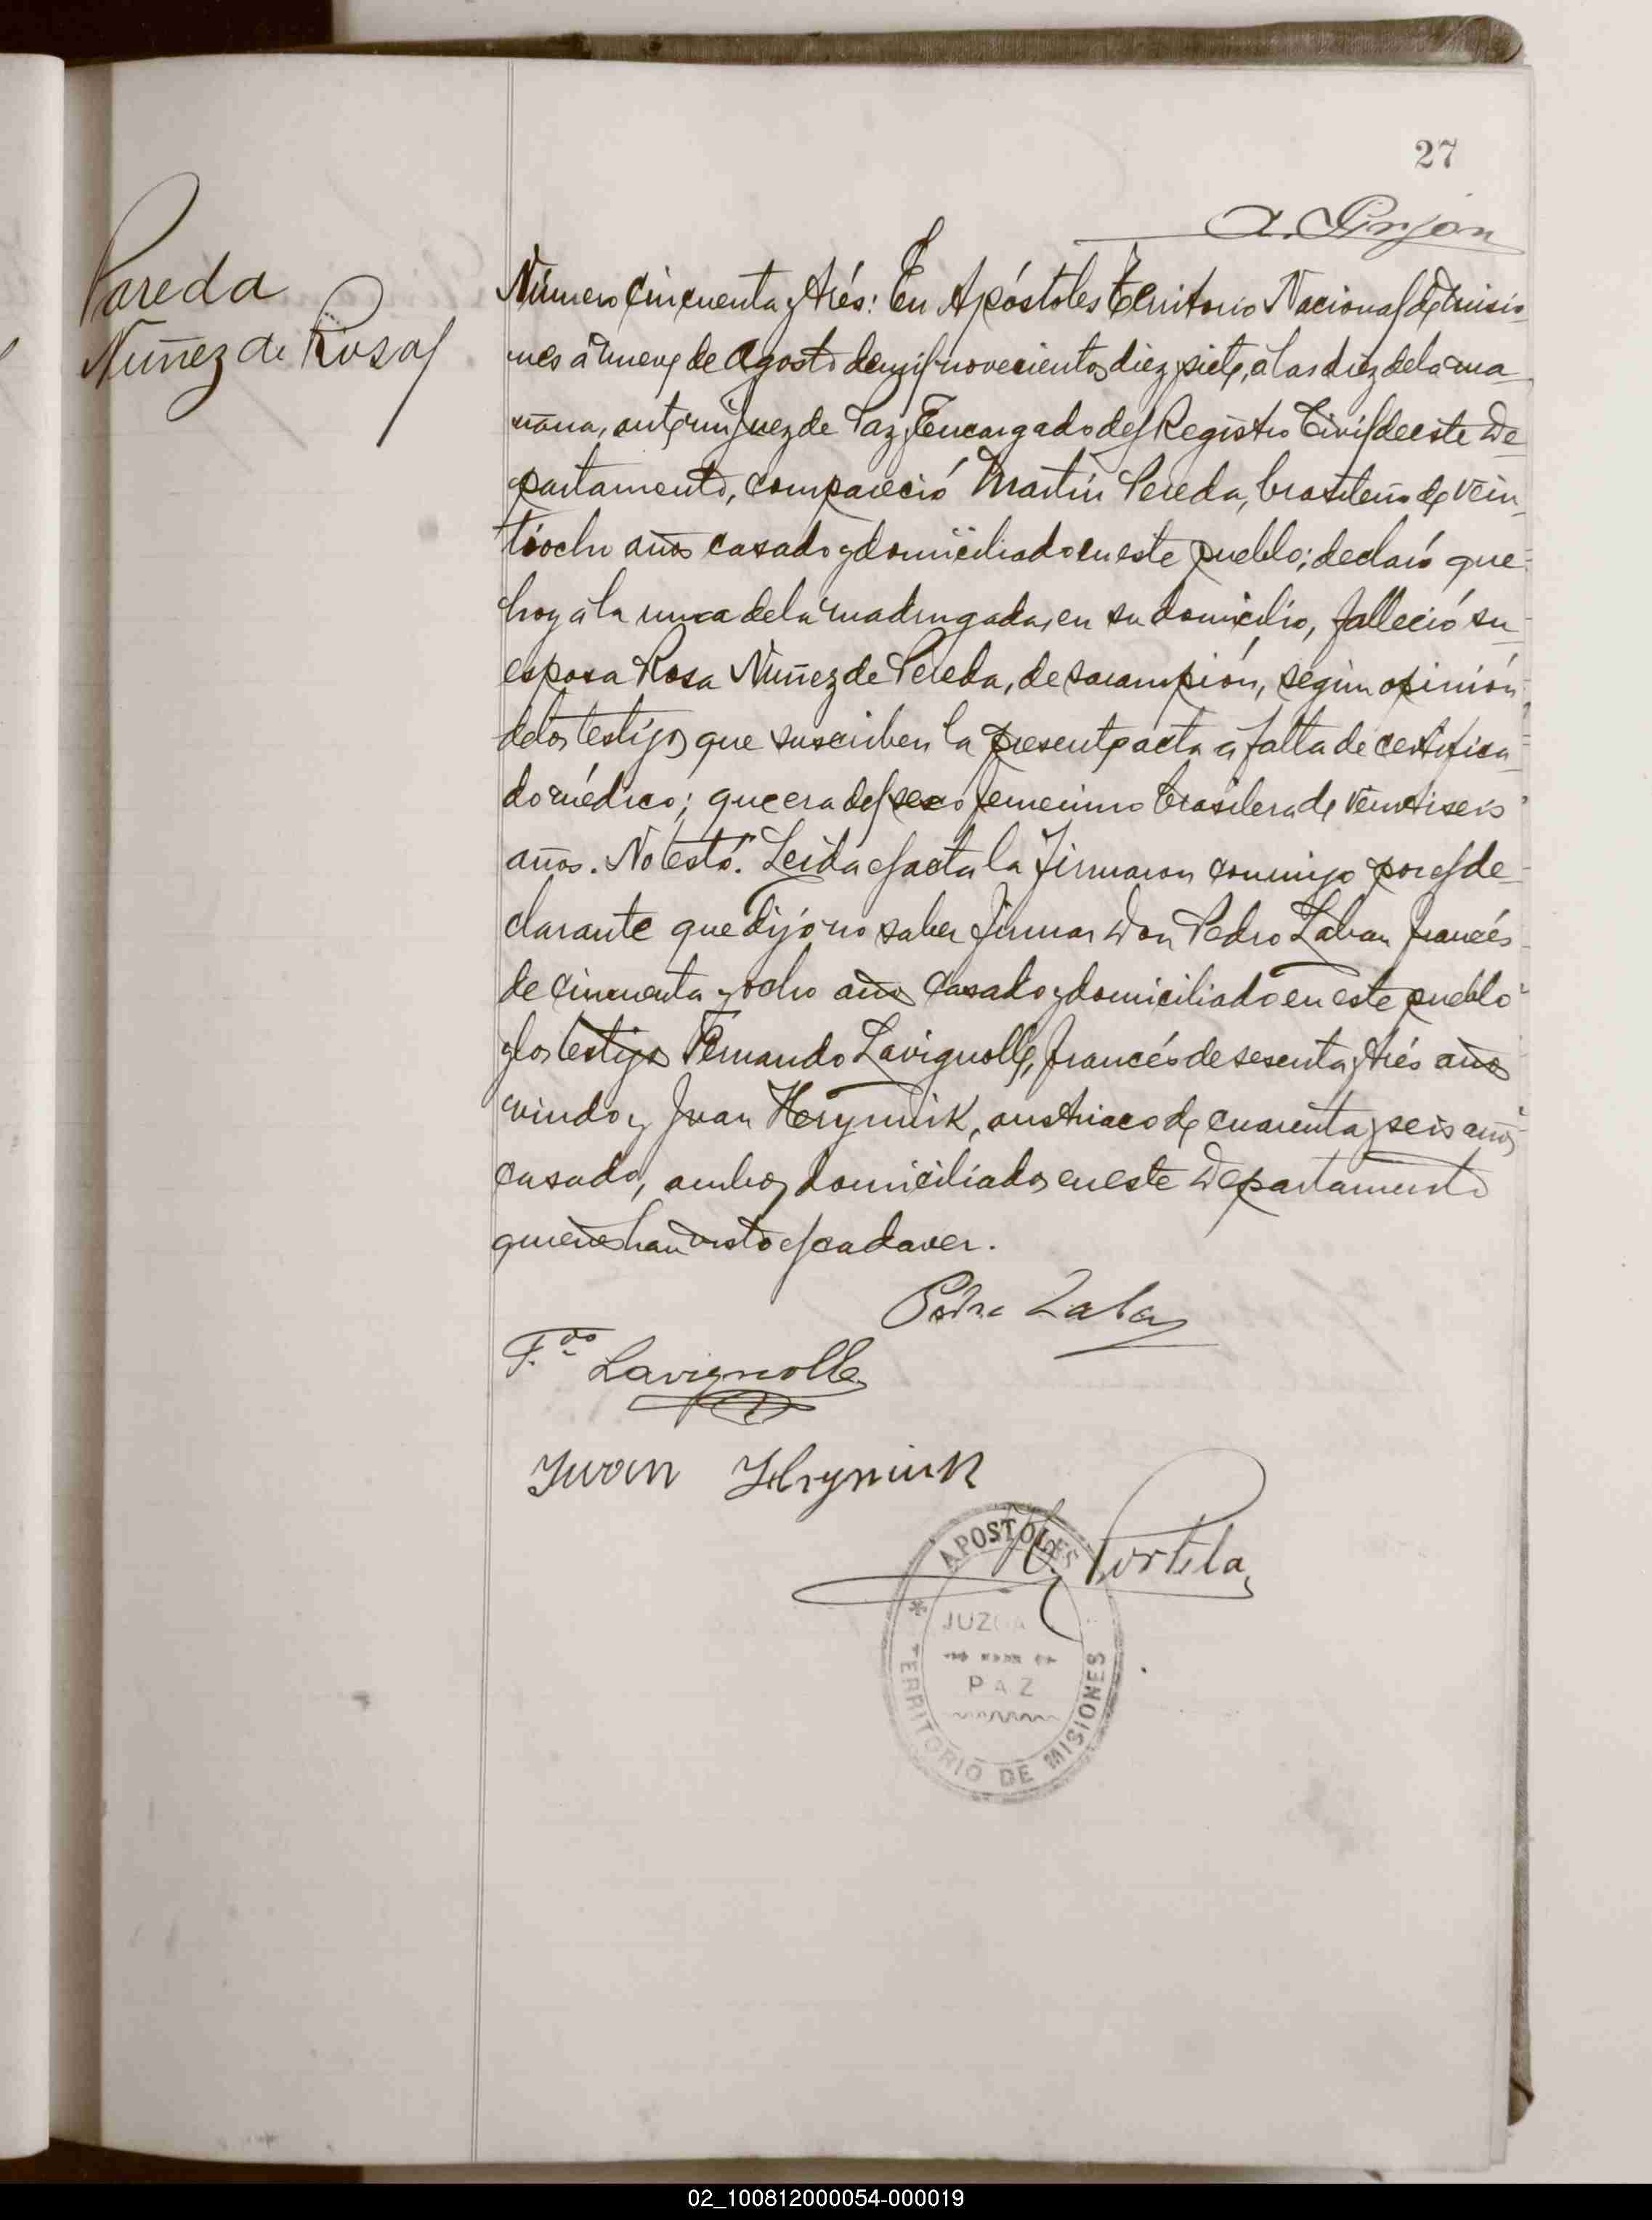 27
Pareda
Nuñez de Rosa
Número cincuenta y trés: En Apóstoles Territorio Nacional de Misio-
nes á nueve de Agosto de mil novecientos diez y siete, á las diez de la ma-
ñana, ante mi Juez de Paz y Encargado del Registro Civil de este De-
partamento, compareció Martin Pereda, brasileño de vein-
tiocho años casado y domiciliado en este pueblo; declaró que
hoy á la una de la madrugada, en su domicilio, falleció su
esposa Rosa Nuñez de Pereda, de sarampión, según opinión
de los testigos que suscriben la presente acta á falta de certifica-
do médico; que era del sexo femenino brasilera de veintiseis
años. No testó. Leida el acta la firmaron conmigo por el de-
clarante que dijó no saber firmar Don Pedro Laban francés
de cincuenta y ocho años casado y domiciliado en este pueblo
y los testigos Fernando Lavignolle, francés de sesenta y trés años
viudo y Juan Hrynuik, austriaco de cuarenta y seis años
casado, ambos domiciliados en este Departamento
quienes han visto el cadaver.
Pedro Laban
F.do Lavignolle
Iwan Hryniuk
Portela
APOSTOLES
JUZGA
PAZ
* TERRITORIO DE MISIONES
02_100812000054-000019